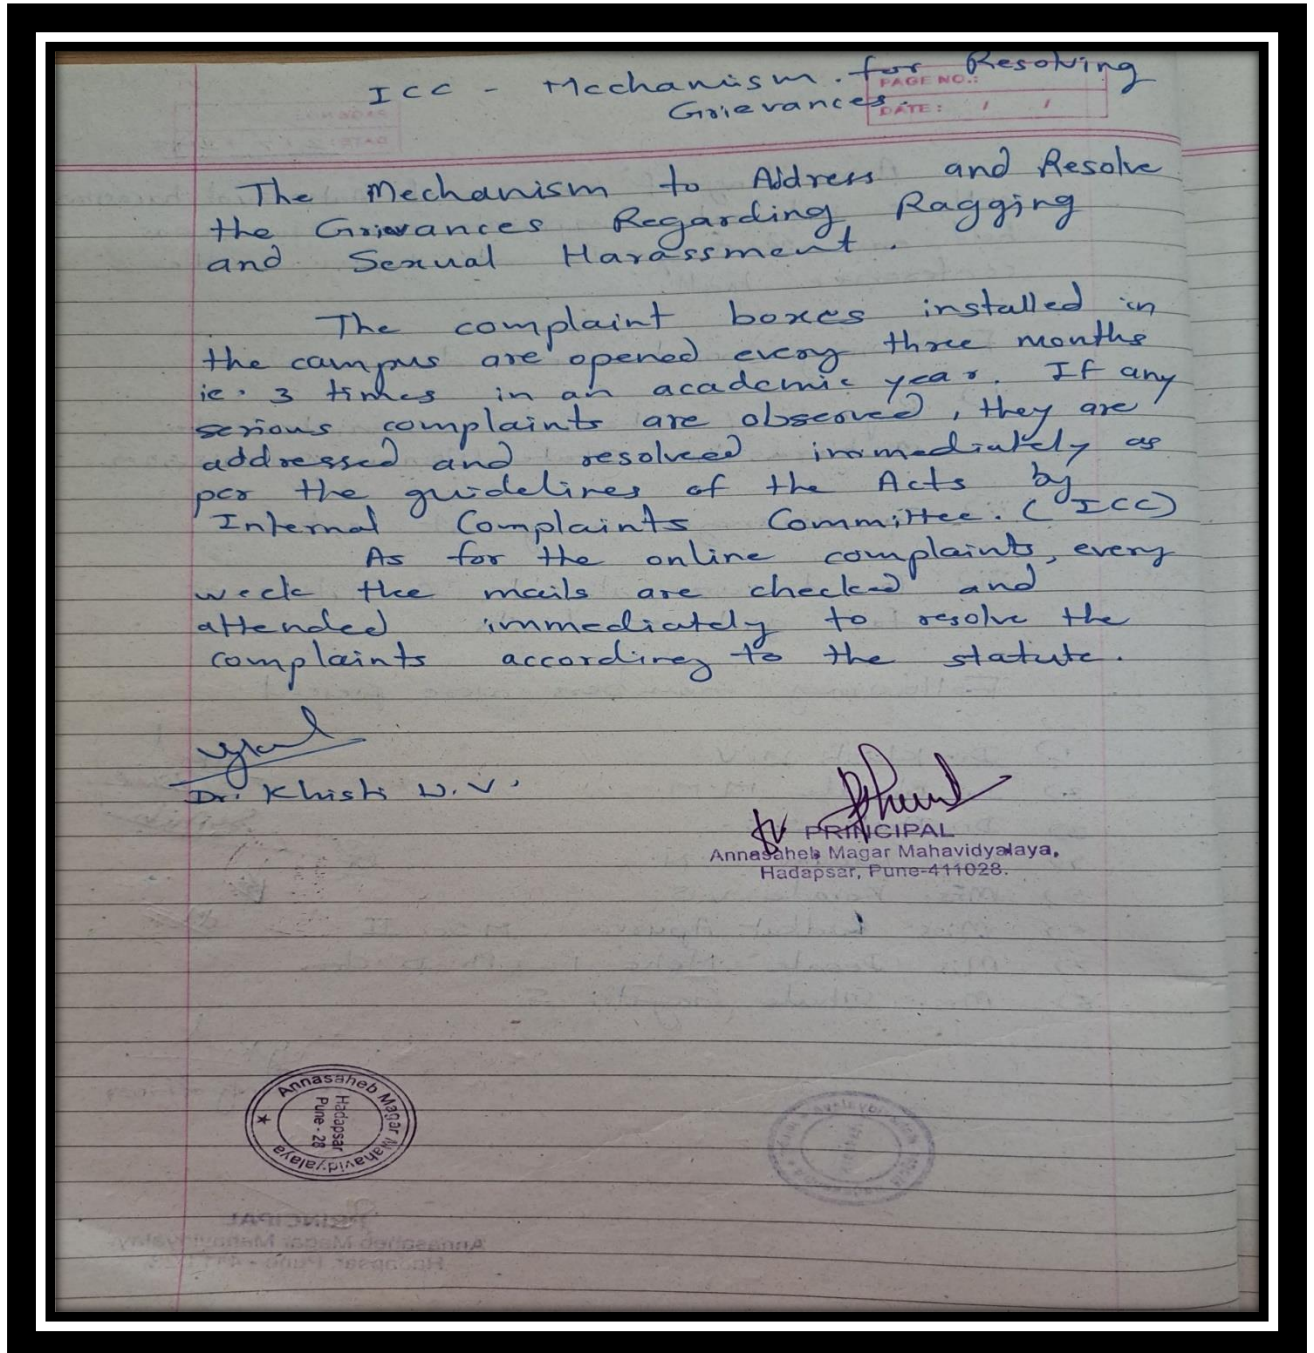 ICC - Mechanism for Resolving
Grievances.
PAGE NO.:
DATE: / /
The Mechanism to Address and Resolve
the Grievances Regarding Ragging
and Sexual Harassment.
The complaint boxes installed in
the campus are opened every three months
ie. 3 times in an academic year. If any
serious complaints are observed, they are
addressed and resolved immediately as
per the guidelines of the Acts by
Internal Complaints Committee. (ICC)
As for the online complaints, every
week the mails are checked and
attended immediately to resolve the
complaints according to the statute.
Dr. Khisti
PRINCIPAL
Annasaheb Magar Mahavidyalaya,
Hadapsar, Pune-411028.
Annasaheb Magar Mahavidyalaya
Hadapsar
Pune - 28